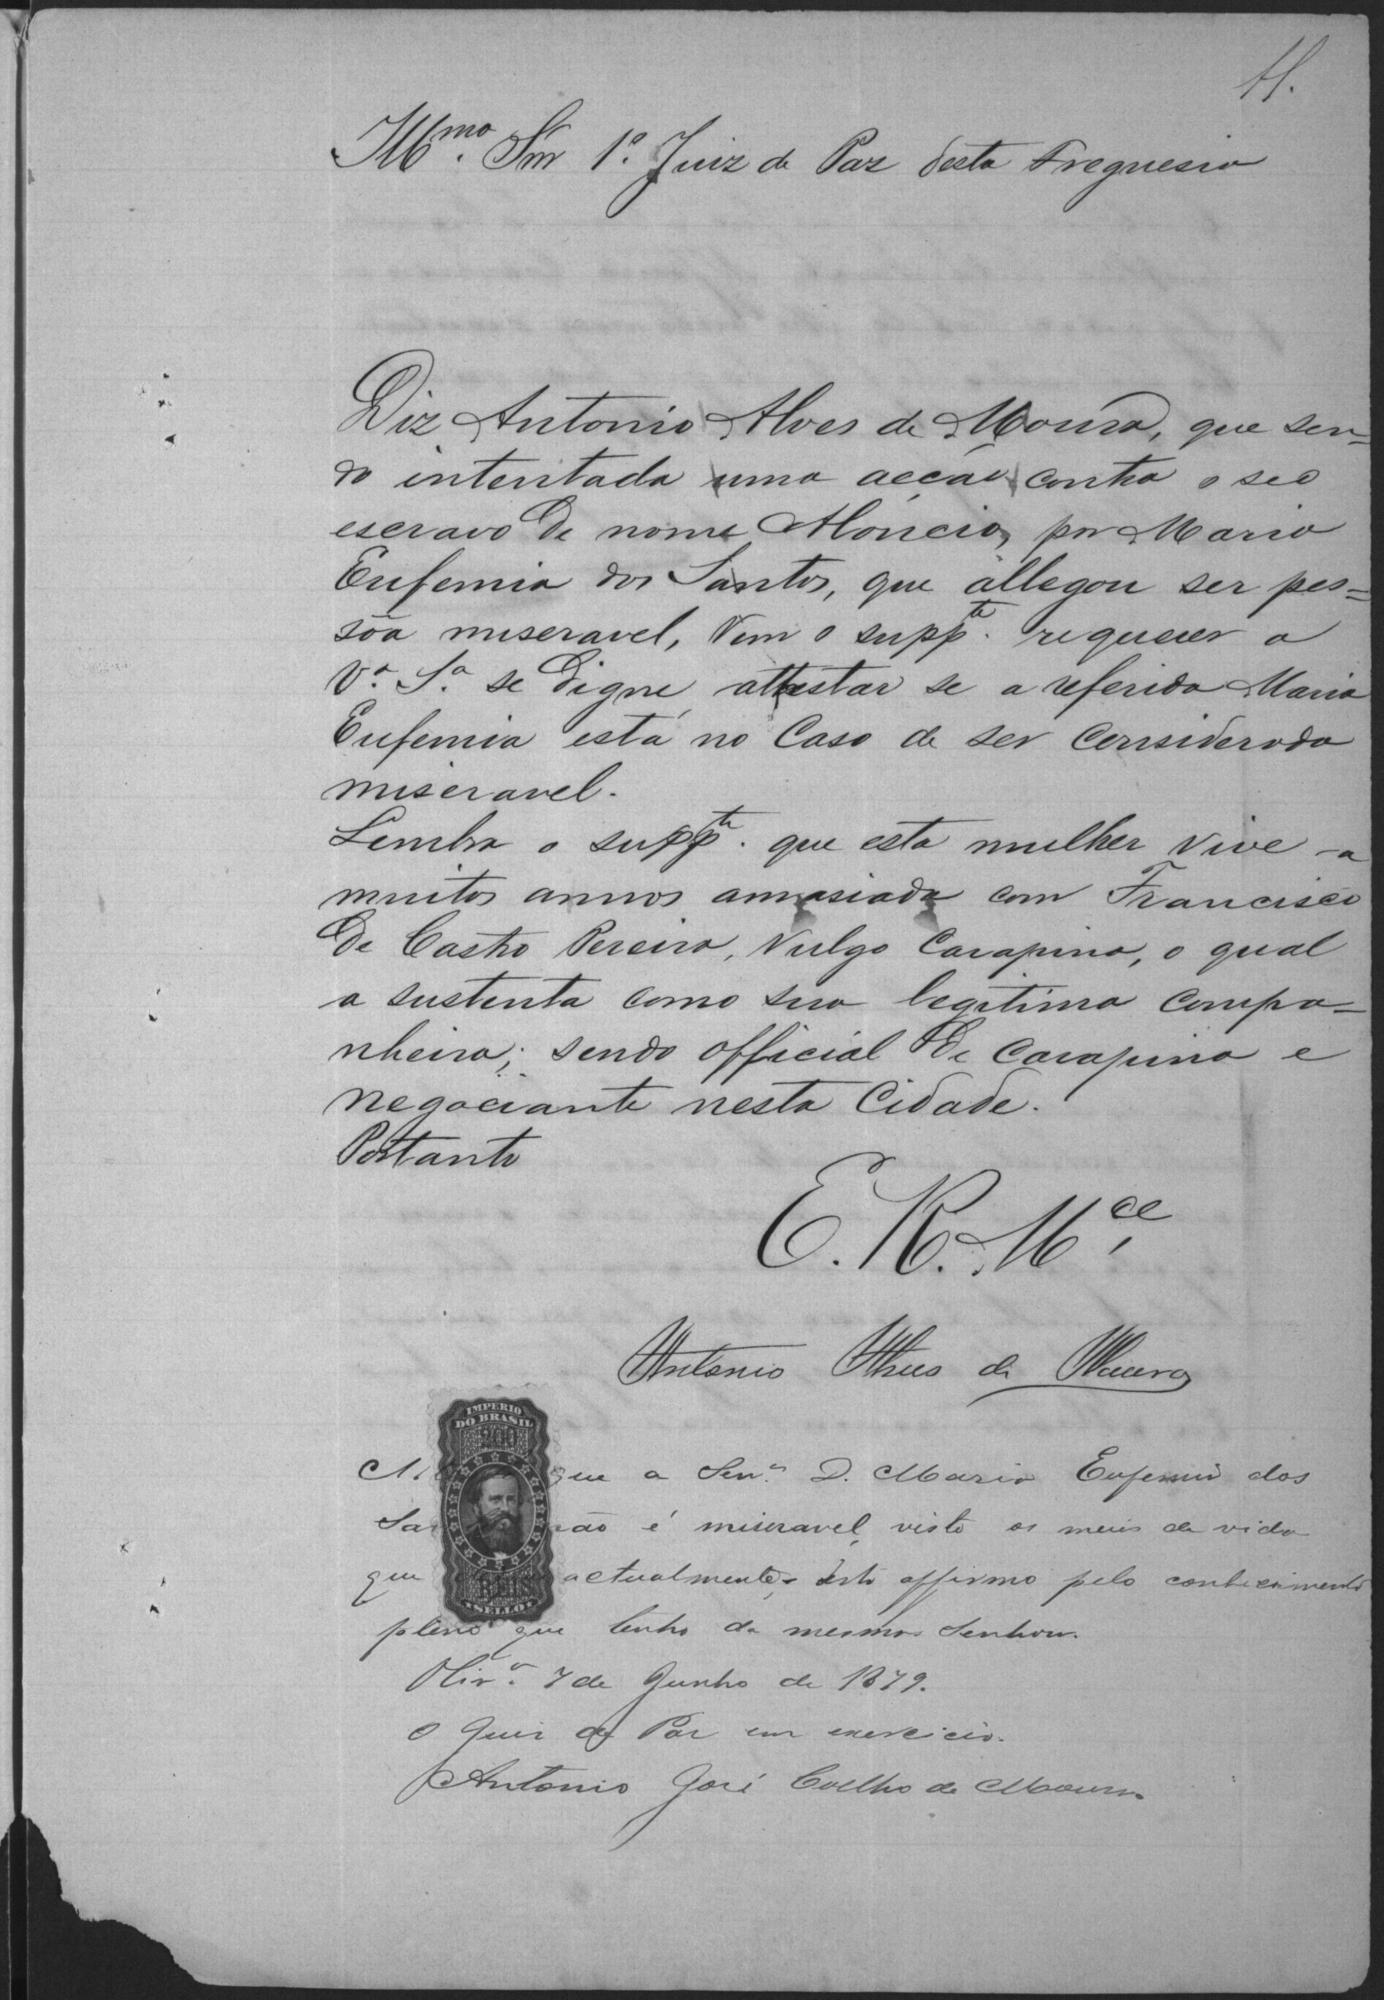 11.
Illmo. Snr 1º. Juiz de Paz desta Freguesia
Diz Antonio Alves de Moura, que sen=
do intentada uma acção contra o seo
escravo de nome Moncio, por Maria
Eufemia dos Santos, que allegou ser pes=
sôa miseravel, vem o suppte. requerer a
Vª. Sª. se digne attestar se a referida Maria
Eufemia está no caso de ser considerada
miseravel.
Lembra o suppte. que esta mulher vive a
muitos annos amasiada com Francisco
de Castro Pereira, vulgo Carapina, o qual
a sustenta como sua legitima compa=
nheira; sendo official de Carapina e
negociante nesta Cidade.
Portanto
E. R. Mce.
Antonio Alves de Moura
IMPERIO
DO BRASIL
200
REIS
SELLO
que a Senrª. D. Maria Eufemia dos
Sa não é miseravel, visto os meios de vida
que actualmente, isto affirmo pelo conhecimento
pleno que tenho da mesma Senhora.
Olivª. 7 de Junho de 1879.
O Juiz de Paz em exercicio.
Antonio José Coelho de Moura